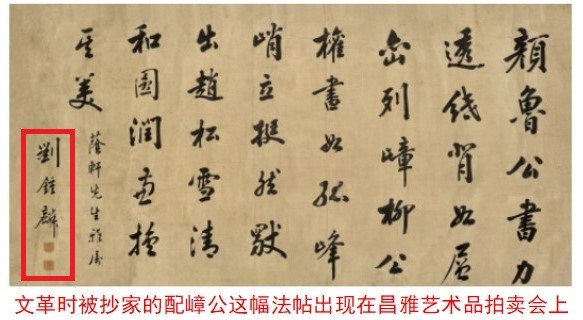 顏魯公書力
透背如層
巒列嶂柳公
權書如孤峰
峭立挺然
出趙松雪清
和圓潤兼擅
其美
蔭軒先生雅屬
劉鍾麟
文革时被抄家的配嶂公这幅法帖出现在昌雅艺术品拍卖会上